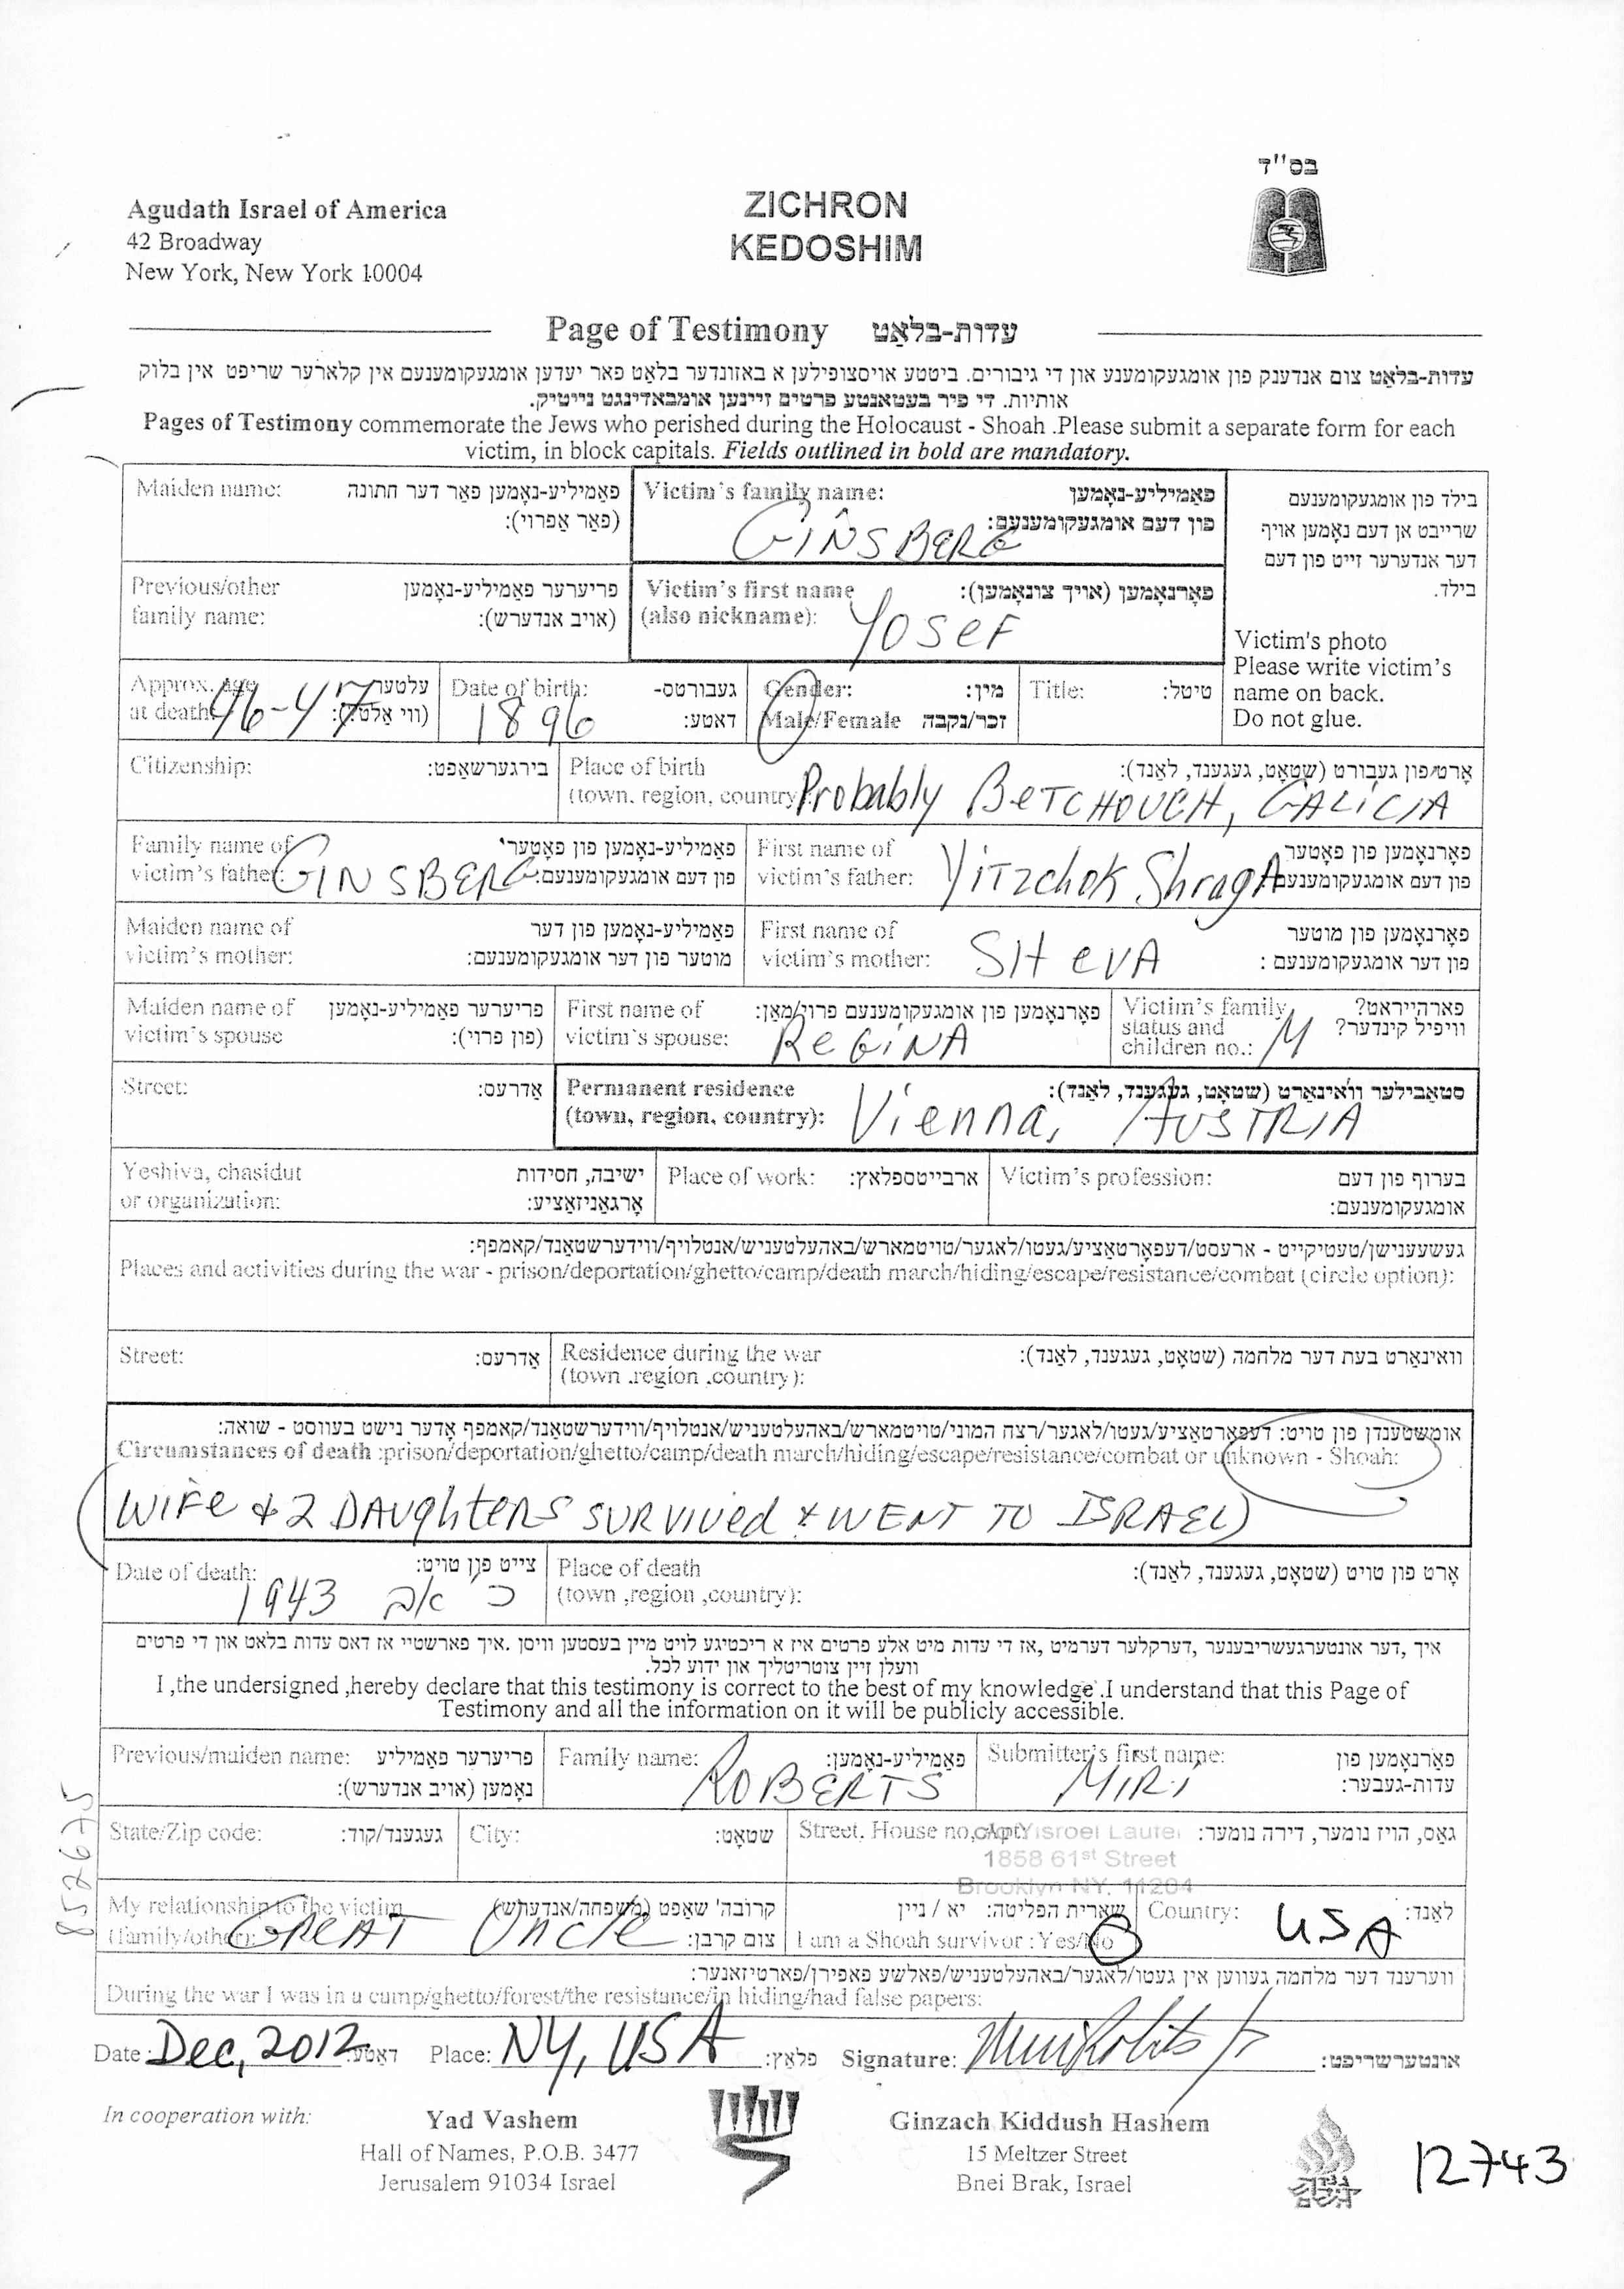 בס"ד
Agudath Israel of America
42 Broadway
New York, New York 10004
ZICHRON
KEDOSHIM
Page of Testimony עדות-בלאַט
עדות-בלאַט צום אנדענק פון אומגעקומענע און די גיבורים. ביטטע אויסצופילען א באזונדער בלאַט פאר יעדען אומגעקומענעם אין קלארער שריפט אין בלוק
אותיות. די פיר בעטאנטע פרטים זיינען אומבאדינגט נייטיק.
Pages of Testimony commemorate the Jews who perished during the Holocaust - Shoah .Please submit a separate form for each
victim, in block capitals. Fields outlined in bold are mandatory.
Maiden name: פאַמיליע-נאָמען פאַר דער חתונה
(פאַר אַפרוי):
Victim's family name: פאַמיליע-נאָמען
פון דעם אומגעקומענעם:
GINSBERG
בילד פון אומגעקומענעם
שרייבט אן דעם נאָמען אויף
דער אנדערער זייט פון דעם
בילד.
Previous/other פריערער פאַמיליע-נאָמען
family name: (אויב אנדערש):
Victim's first name פאָרנאָמען (אויך צונאָמען):
(also nickname): YOSEF
Victim's photo
Please write victim's
name on back.
Do not glue.
Approx. age עלטער
at death: 46-47 (ווי אַלט?):
Date of birth: געבורטס-
1896 דאַטע:
Gender: מין:
Male/Female זכר/נקבה
Title: טיטל:
Citizenship: בירגערשאַפט:
Place of birth אָרט פון געבורט (שטאָט, געגענד, לאַנד):
(town, region, country Probably BETCHOUCH, GALICIA
Family name of פאַמיליע-נאָמען פון פאָטער
victim's father: GINSBERG פון דעם אומגעקומענעם:
First name of פאָרנאָמען פון פאָטער
victim's father: Yitzchok Shraga פון דעם אומגעקומענעם
Maiden name of פאַמיליע-נאָמען פון דער
victim's mother: מוטער פון דער אומגעקומענעם:
First name of פאָרנאָמען פון מוטער
victim's mother: SHEVA פון דער אומגעקומענעם :
Maiden name of פריערער פאַמיליע-נאָמען
victim's spouse (פון פרוי):
First name of פאָרנאָמען פון אומגעקומענעם פרוי/מאַן:
victim's spouse: REGINA
Victim's family פארהייראט?
status and וויפיל קינדער?
children no.: M
Street: אַדרעס:
Permanent residence סטאַבילער וואוינאָרט (שטאָט, געגענד, לאַנד):
(town, region, country): Vienna, AUSTRIA
Yeshiva, chasidut ישיבה, חסידות
or organization: אָרגאַניזאַציע:
Place of work: ארבייטספלאץ:
Victim's profession: בערוף פון דעם
אומגעקומענעם:
געשעענישן/טעטיקייט - ארעסט/דעפּאָרטאַציע/געטו/לאגער/טויטמארש/באהעלטעניש/אנטלויף/ווידערשטאַנד/קאמפף:
Places and activities during the war - prison/deportation/ghetto/camp/death march/hiding/escape/resistance/combat (circle option):
Street: אַדרעס:
Residence during the war וואוינאָרט בעת דער מלחמה (שטאָט, געגענד, לאַנד):
(town ,region ,country):
אומשטענדן פון טויט: דעפּאָרטאַציע/געטו/לאגער/רצח המוני/טויטמארש/באהעלטעניש/אנטלויף/ווידערשטאַנד/קאמפף אָדער נישט בעוווסט - שואה:
Circumstances of death :prison/deportation/ghetto/camp/death march/hiding/escape/resistance/combat or unknown - Shoah:
(WIFE & 2 DAUGHTERS SURVIVED & WENT TO ISRAEL)
Date of death: צייט פון טויט:
1943 כ' אב
Place of death אָרט פון טויט (שטאָט, געגענד, לאַנד):
(town ,region ,country):
איך ,דער אונטערגעשריבענער ,דערקלער דערמיט ,אז די עדות מיט אלע פרטים איז א ריכטיגע לויט מיין בעסטען וויסן .איך פארשטיי אז דאס עדות בלאט און די פרטים
וועלן זיין צוטריטליך און ידוע לכל.
I ,the undersigned ,hereby declare that this testimony is correct to the best of my knowledge .I understand that this Page of
Testimony and all the information on it will be publicly accessible.
Previous/maiden name: פריערער פאַמיליע
נאָמען (אויב אנדערש):
Family name: פאַמיליע-נאָמען:
ROBERTS
Submitter's first name: פאָרנאָמען פון
MIRI עדות-געבער:
State/Zip code: געגענד/קוד:
City: שטאָט:
Street, House no, Apt: גאַס, הויז נומער, דירה נומער:
c/o Yisroel Laufer
1858 61st Street
Brooklyn NY. 11204
My relationship to the victim קרובה' שאפט (משפחה/אנדערש)
(family/other): GREAT UNCLE צום קרבן:
שארית הפליטה: יא / ניין
I am a Shoah survivor : Yes/No
Country: USA לאַנד:
ווערענד דער מלחמה געווען אין געטו/לאַגער/באהעלטעניש/פאלשע פאפירן/פארטיזאנער:
During the war I was in a camp/ghetto/forest/the resistance/in hiding/had false papers:
Date: Dec, 2012 דאַטע: Place: NY, USA פלאַץ: Signature: אונטערשריפט:
In cooperation with:
Yad Vashem
Hall of Names, P.O.B. 3477
Jerusalem 91034 Israel
Ginzach Kiddush Hashem
15 Meltzer Street
Bnei Brak, Israel
12743
852675